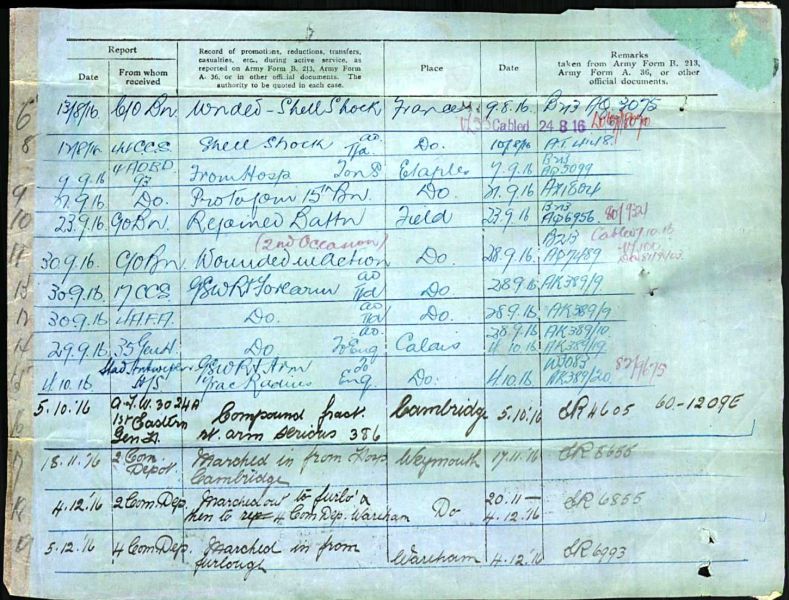 Report
Date
From whom received
Record of promotions, reductions, transfers, casualties, etc., during active service, as reported on Army Form B. 213, Army Form A. 36, or in other official documents. The authority to be quoted in each case.
Place
Date
Remarks
taken from Army Form B. 213, Army Form A. 36, or other official documents.
6 13/8/16 C/O Bn. Wonded - Shell Shock France 9.8.16 B213 AQ 3075
Cabled 24 8 16
8 44 CCS Shell Shock ao Tfd Do. 10/8/16
9.9.16 4 ADBD From Hosp Etaples 7.9.16 B213 AQ5099
9 Do. Pro to join 15th Bn. Do. 21.9.16 AK1804
10 23.9.16 C/O Bn. Rejoined Battn Field 23.9.16 B213 AQ6956
Cabled 9.10.16
(2nd Occasion)
11 30.9.16. C/O Bn. Wounded in Action Do. 28.9.16 B213
30.9.16 17 CCS GSW Rt Forearm ao Tfd Do 28.9.16 AK389/9
30.9.16 4 AFA Do. ao Tfd Do. 28.9.16 AK389/9
14 29.9.16 35 Gen H Do ao. To Eng Calais 28.9.16 4.10.16 AK389/10 AK389/19
4.10.16 Stad Antwerpen H/S GSW Rt Arm Frac Radius To Eng Do. 4.10.16 W3083 AK389/20
5.10.'16 A.F.W. 3024A 1st Eastern Gen H. Compound fract rt. arm serious 386 Cambridge 5.10.'16 SR 4605 60-1209E
18.11.'16 2 Com. Depot. Marched in from Hosp Cambridge Weymouth 17.11.'16 SR 5655
4.12.'16 2 Com. Dep. Marched out to furlo' & then to rep 4 Com. Dep. Wareham Do 20.11 - 4.12.'16 SR 6855
5.12.'16 4 Com Dep. Marched in from furlough Wareham 4.12.'16 SR 6993